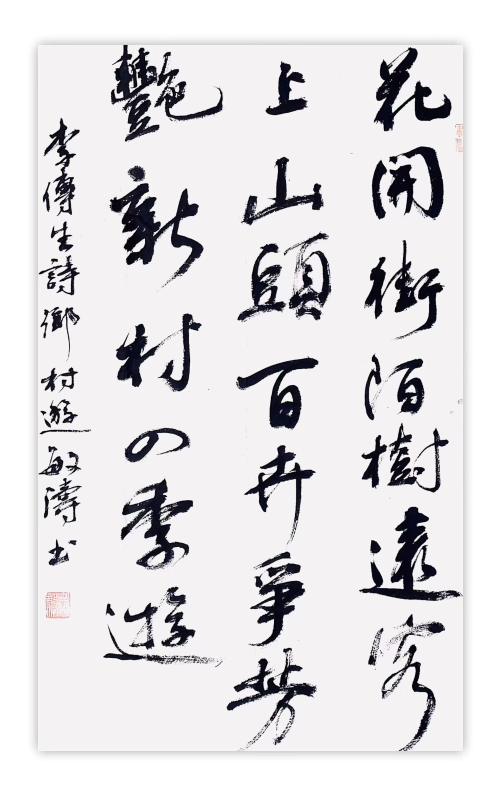 花開街陌樹遠客
上山頭百卉爭芳
艷新村四季遊
李傳生詩鄉村遊敏濤书